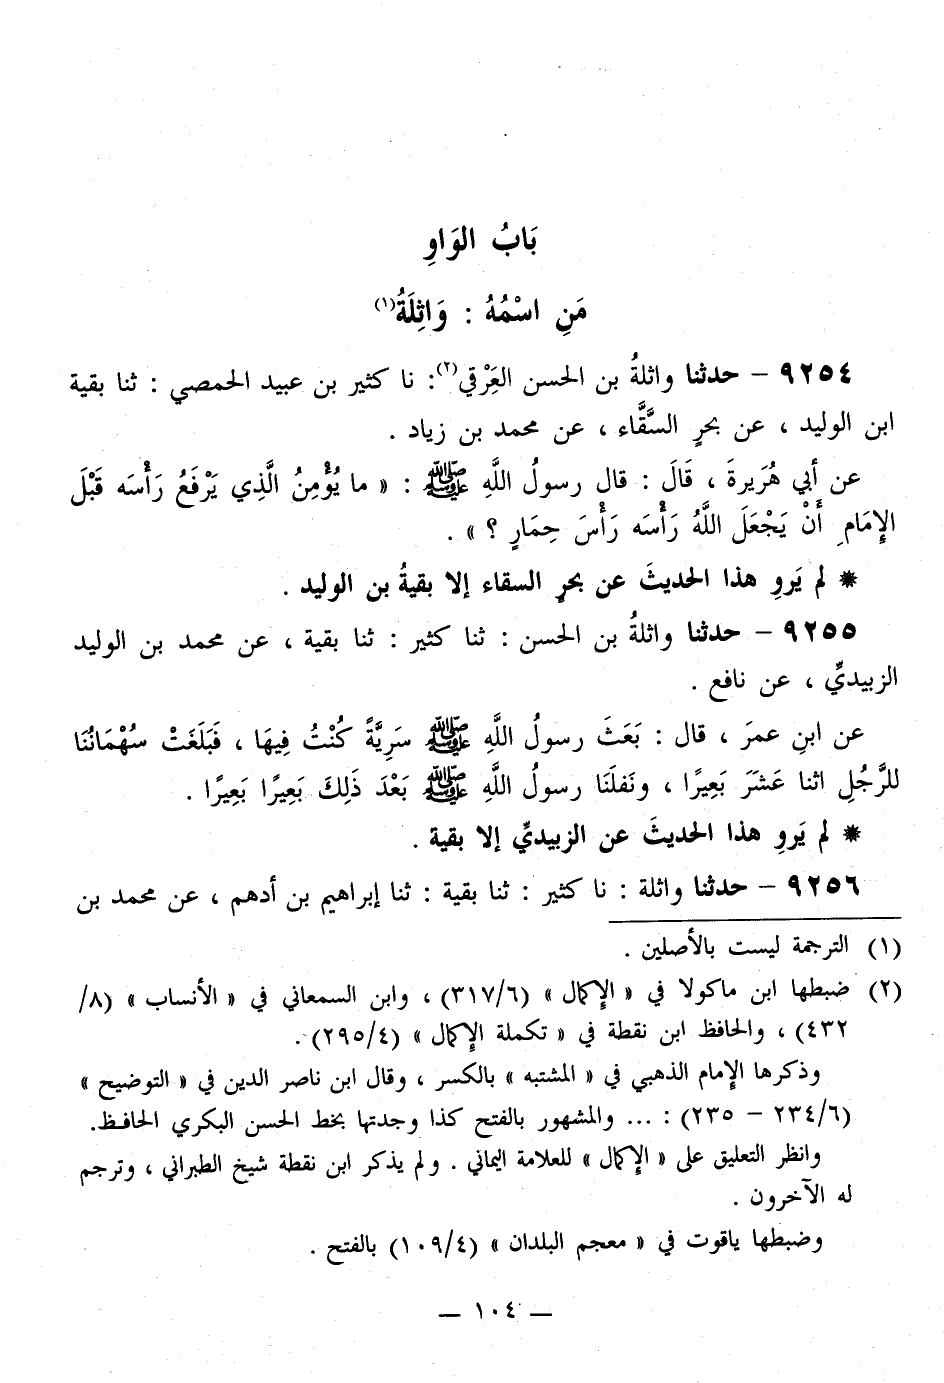 بَابُ الوَاوِ
مَنِ اسْمُهُ : وَاثِلَةُ(١)
٩٢٥٤ – حدثنا واثلةُ بن الحسن العِرْقي(٢): نا كثير بن عبيد الحمصي : ثنا بقية
ابن الوليد ، عن بحرٍ السَّقَّاء ، عن محمد بن زياد .
عن أبي هُرَيرةَ ، قَالَ : قال رسولُ اللَّهِ ﷺ : « ما يُؤْمِنُ الَّذِي يَرْفَعُ رَأْسَه قَبْلَ
الإِمَامِ أَنْ يَجْعَلَ اللَّهُ رَأْسَه رَأْسَ حِمَارٍ ؟ » .
* لم يَروِ هذا الحديثَ عن بحرٍ السقاء إلا بقيةُ بن الوليد .
٩٢٥٥ – حدثنا واثلةُ بن الحسن : ثنا كثير : ثنا بقية ، عن محمد بن الوليد
الزبيديِّ ، عن نافع .
عن ابنِ عمرَ ، قال : بَعَثَ رسولُ اللَّهِ ﷺ سَرِيَّةً كُنْتُ فِيهَا ، فَبَلَغَتْ سُهْمَانُنَا
للرَّجُلِ اثنا عَشَرَ بَعِيرًا ، ونَفلَنَا رسولُ اللَّهِ ﷺ بَعْدَ ذَلِكَ بَعِيرًا بَعِيرًا .
* لم يَروِ هذا الحديثَ عن الزبيديِّ إلا بقية .
٩٢٥٦ – حدثنا واثلة : نا كثير : ثنا بقية : ثنا إبراهيم بن أدهم ، عن محمد بن
(١) الترجمة ليست بالأصلين .
(٢) ضبطها ابن ماكولا في « الإكمال » (٣١٧/٦) ، وابن السمعاني في « الأنساب » (٨/
٤٣٢) ، والحافظ ابن نقطة في « تكملة الإكمال » (٢٩٥/٤) .
وذكرها الإمام الذهبي في « المشتبه » بالكسر ، وقال ابن ناصر الدين في « التوضيح »
(٢٣٤/٦ – ٢٣٥) : ... والمشهور بالفتح كذا وجدتها بخط الحسن البكري الحافظ.
وانظر التعليق على « الإكمال » للعلامة اليماني . ولم يذكر ابن نقطة شيخ الطبراني ، وترجم
له الآخرون .
وضبطها ياقوت في « معجم البلدان » (١٠٩/٤) بالفتح .
— ١٠٤ —